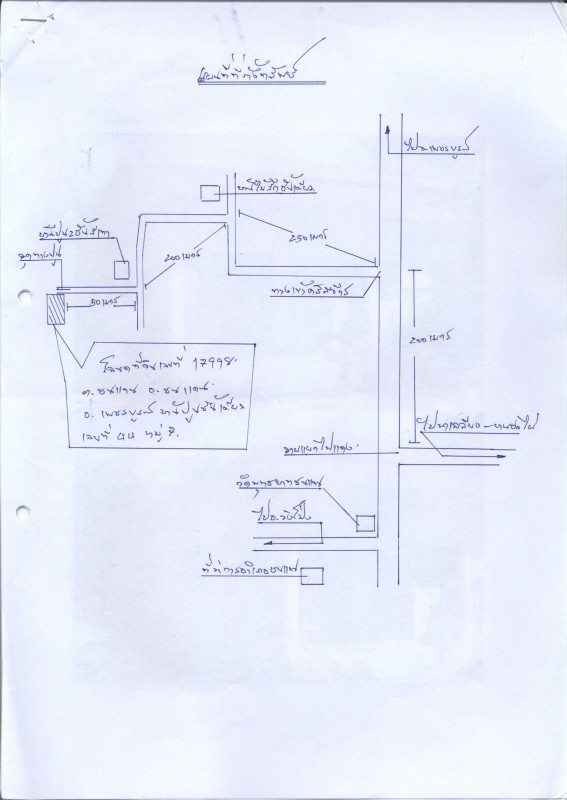 แผนที่ที่ตั้งทรัพย์
ไปจ.เพชรบูรณ์
บ้านไม้ตึกชั้นเดียว
250 เมตร
บ้านปูน2ชั้นสีเทา
สุดทางปูน
200 เมตร
50 เมตร
ทางเข้า
200 เมตร
โฉนดที่ดินเลขที่ 17998
ต.ชนแดน อ.ชนแดน
จ.เพชรบูรณ์ บ้านปูนชั้นเดียว
เลขที่ หมู่
ไปนาเฉลียง-หนองไผ่
สามแยกไฟแดง
วัด
ไปอ.วังโป่ง
ที่ว่าการอำเภอชนแดน